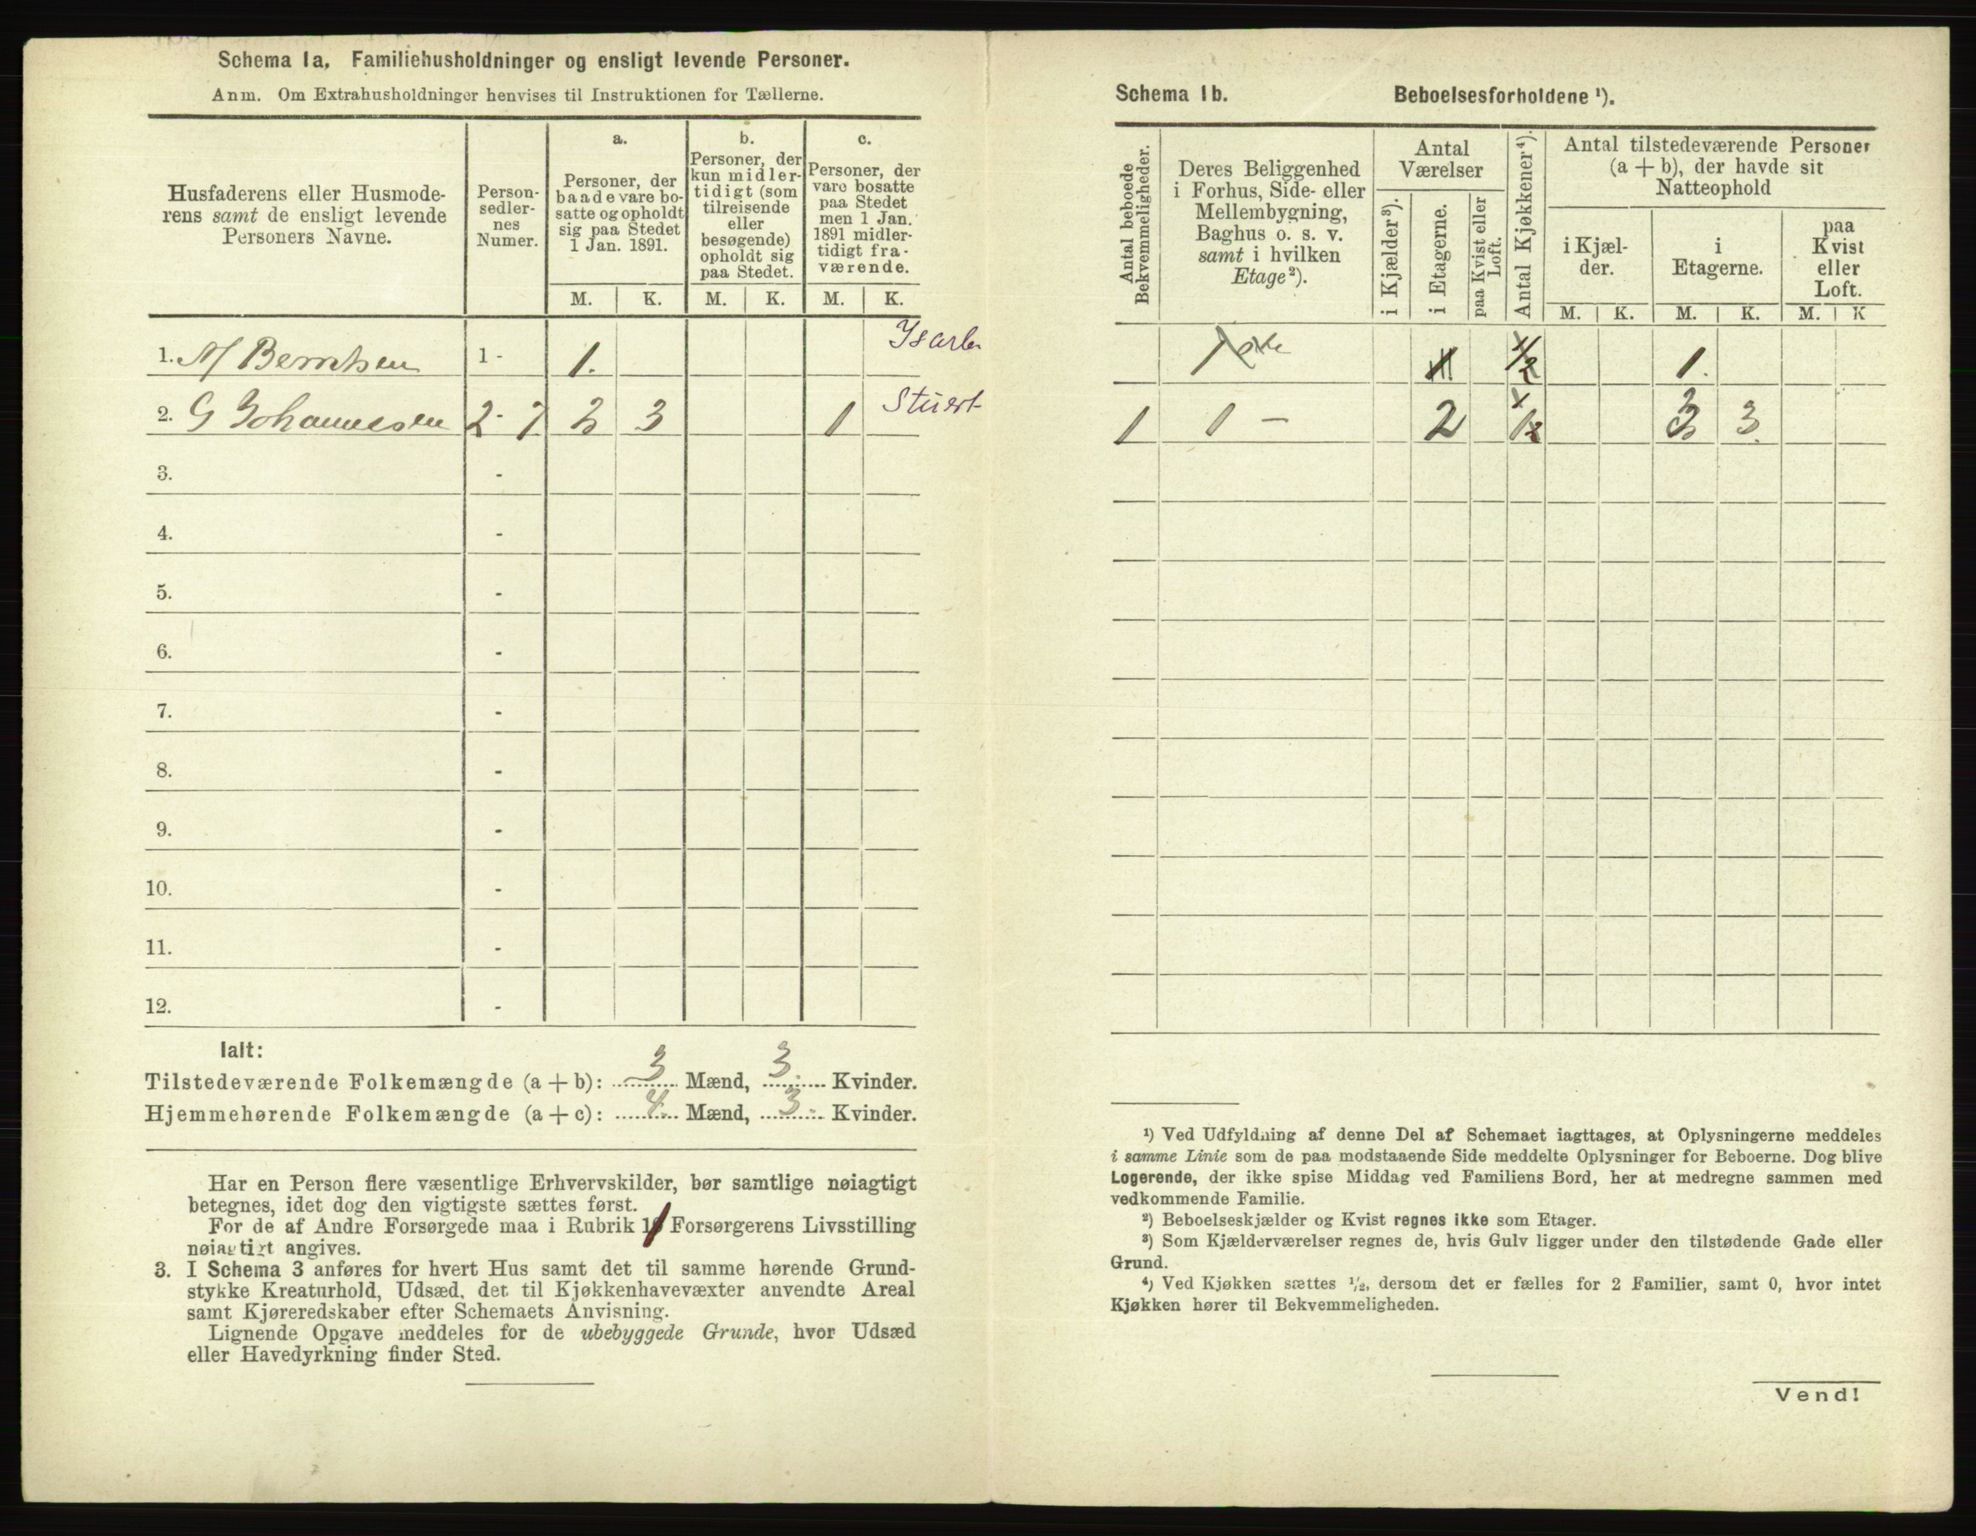 Schema 1a. Familiehusholdninger og ensligt levende Personer.
Anm. Om Extrahusholdninger henvises til Instruktionen for Tællerne.
Husfaderens eller Husmode-
rens samt de ensligt levende
Personers Navne.
Person-
sedler-
nes
Numer.
a.
Personer, der
baade vare bo-
satte og opholdt
sig paa Stedet
1 Jan. 1891.
b.
Personer, der
kun midler-
tidigt (som
tilreisende
eller
besøgende)
opholdt sig
paa Stedet.
c.
Personer, der
vare bosatte
paa Stedet
men 1 Jan.
1891 midler-
tidigt fra-
værende.
M. K. M. K. M. K.
1. Berntsen 1 - 1.
2. G Johannesen 2 - 7 2 3 1
3. -
4. -
5. -
6. -
7. -
8. -
9. -
10. -
11. -
12. -
Ialt:
Tilstedeværende Folkemængde (a + b): 3 Mænd, 3 Kvinder.
Hjemmehørende Folkemængde (a + c): 4 Mænd, 3 Kvinder.
Har en Person flere væsentlige Erhvervskilder, bør samtlige nøiagtigt
betegnes, idet dog den vigtigste sættes først.
For de af Andre Forsørgede maa i Rubrik Forsørgerens Livsstilling
nøiagtigt angives.
3. I Schema 3 anføres for hvert Hus samt det til samme hørende Grund-
stykke Kreaturhold, Udsæd, det til Kjøkkenhavevæxter anvendte Areal
samt Kjøreredskaber efter Schemaets Anvisning.
Lignende Opgave meddeles for de ubebyggede Grunde, hvor Udsæd
eller Havedyrkning finder Sted.
Schema 1b. Beboelsesforholdene ¹).
Antal beboede
Bekvemmeligheder.
Deres Beliggenhed
i Forhus, Side- eller
Mellembygning,
Baghus o. s. v.
samt i hvilken
Etage²).
Antal
Værelser
i Kjælder³).
i Etagerne.
paa Kvist eller
Loft.
Antal Kjøkkener⁴).
Antal tilstedeværende Personer
(a + b), der havde sit
Natteophold
i Kjæl-
der.
i
Etagerne.
paa
Kvist
eller
Loft.
M. K. M. K. M. K
1.
1 1 - 2 3
¹) Ved Udfyldning af denne Del af Schemaet iagttages, at Oplysningerne meddeles
i samme Linie som de paa modstaaende Side meddelte Oplysninger for Beboerne. Dog blive
Logerende, der ikke spise Middag ved Familiens Bord, her at medregne sammen med
vedkommende Familie.
²) Beboelseskjælder og Kvist regnes ikke som Etager.
³) Som Kjælderværelser regnes de, hvis Gulv ligger under den tilstødende Gade eller
Grund.
⁴) Ved Kjøkken sættes ½, dersom det er fælles for 2 Familier, samt 0, hvor intet
Kjøkken hører til Bekvemmeligheden.
Vend!